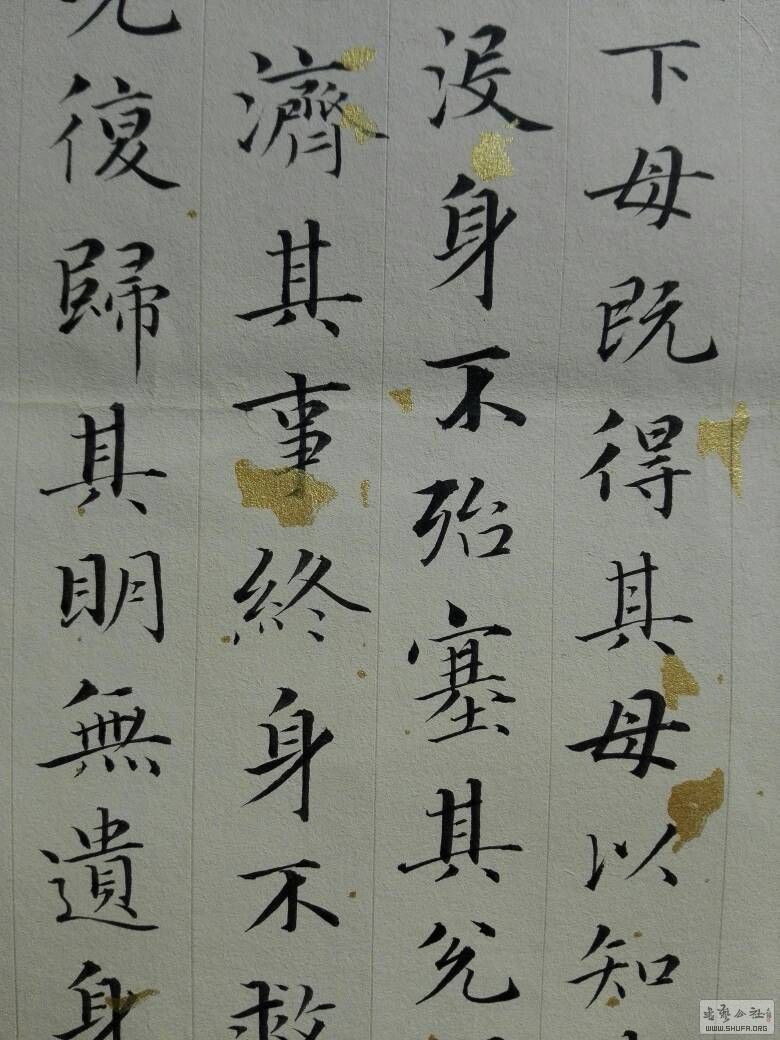 下母既得其母以知
没身不殆塞其兑
濟其事終身不救
光復歸其明無遺身
WWW.SHUFA.ORG